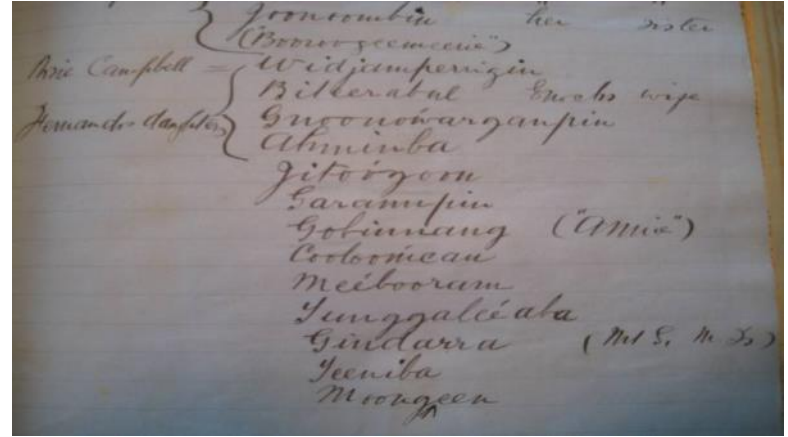 Joonoombin her sister
(Booroogeemeerie")
Rosie Campbell = Widjamperrigin
Bitterabul Enochs wife
Fernandos daughters Gnoonowarganpin
Ahminba
Jitoogoon
Garanupin
Gobinnang ("Annie")
Cooboomcau
Meiboorum
Yunggalcéaba
Gindarra
Yeeniba
Moongeen